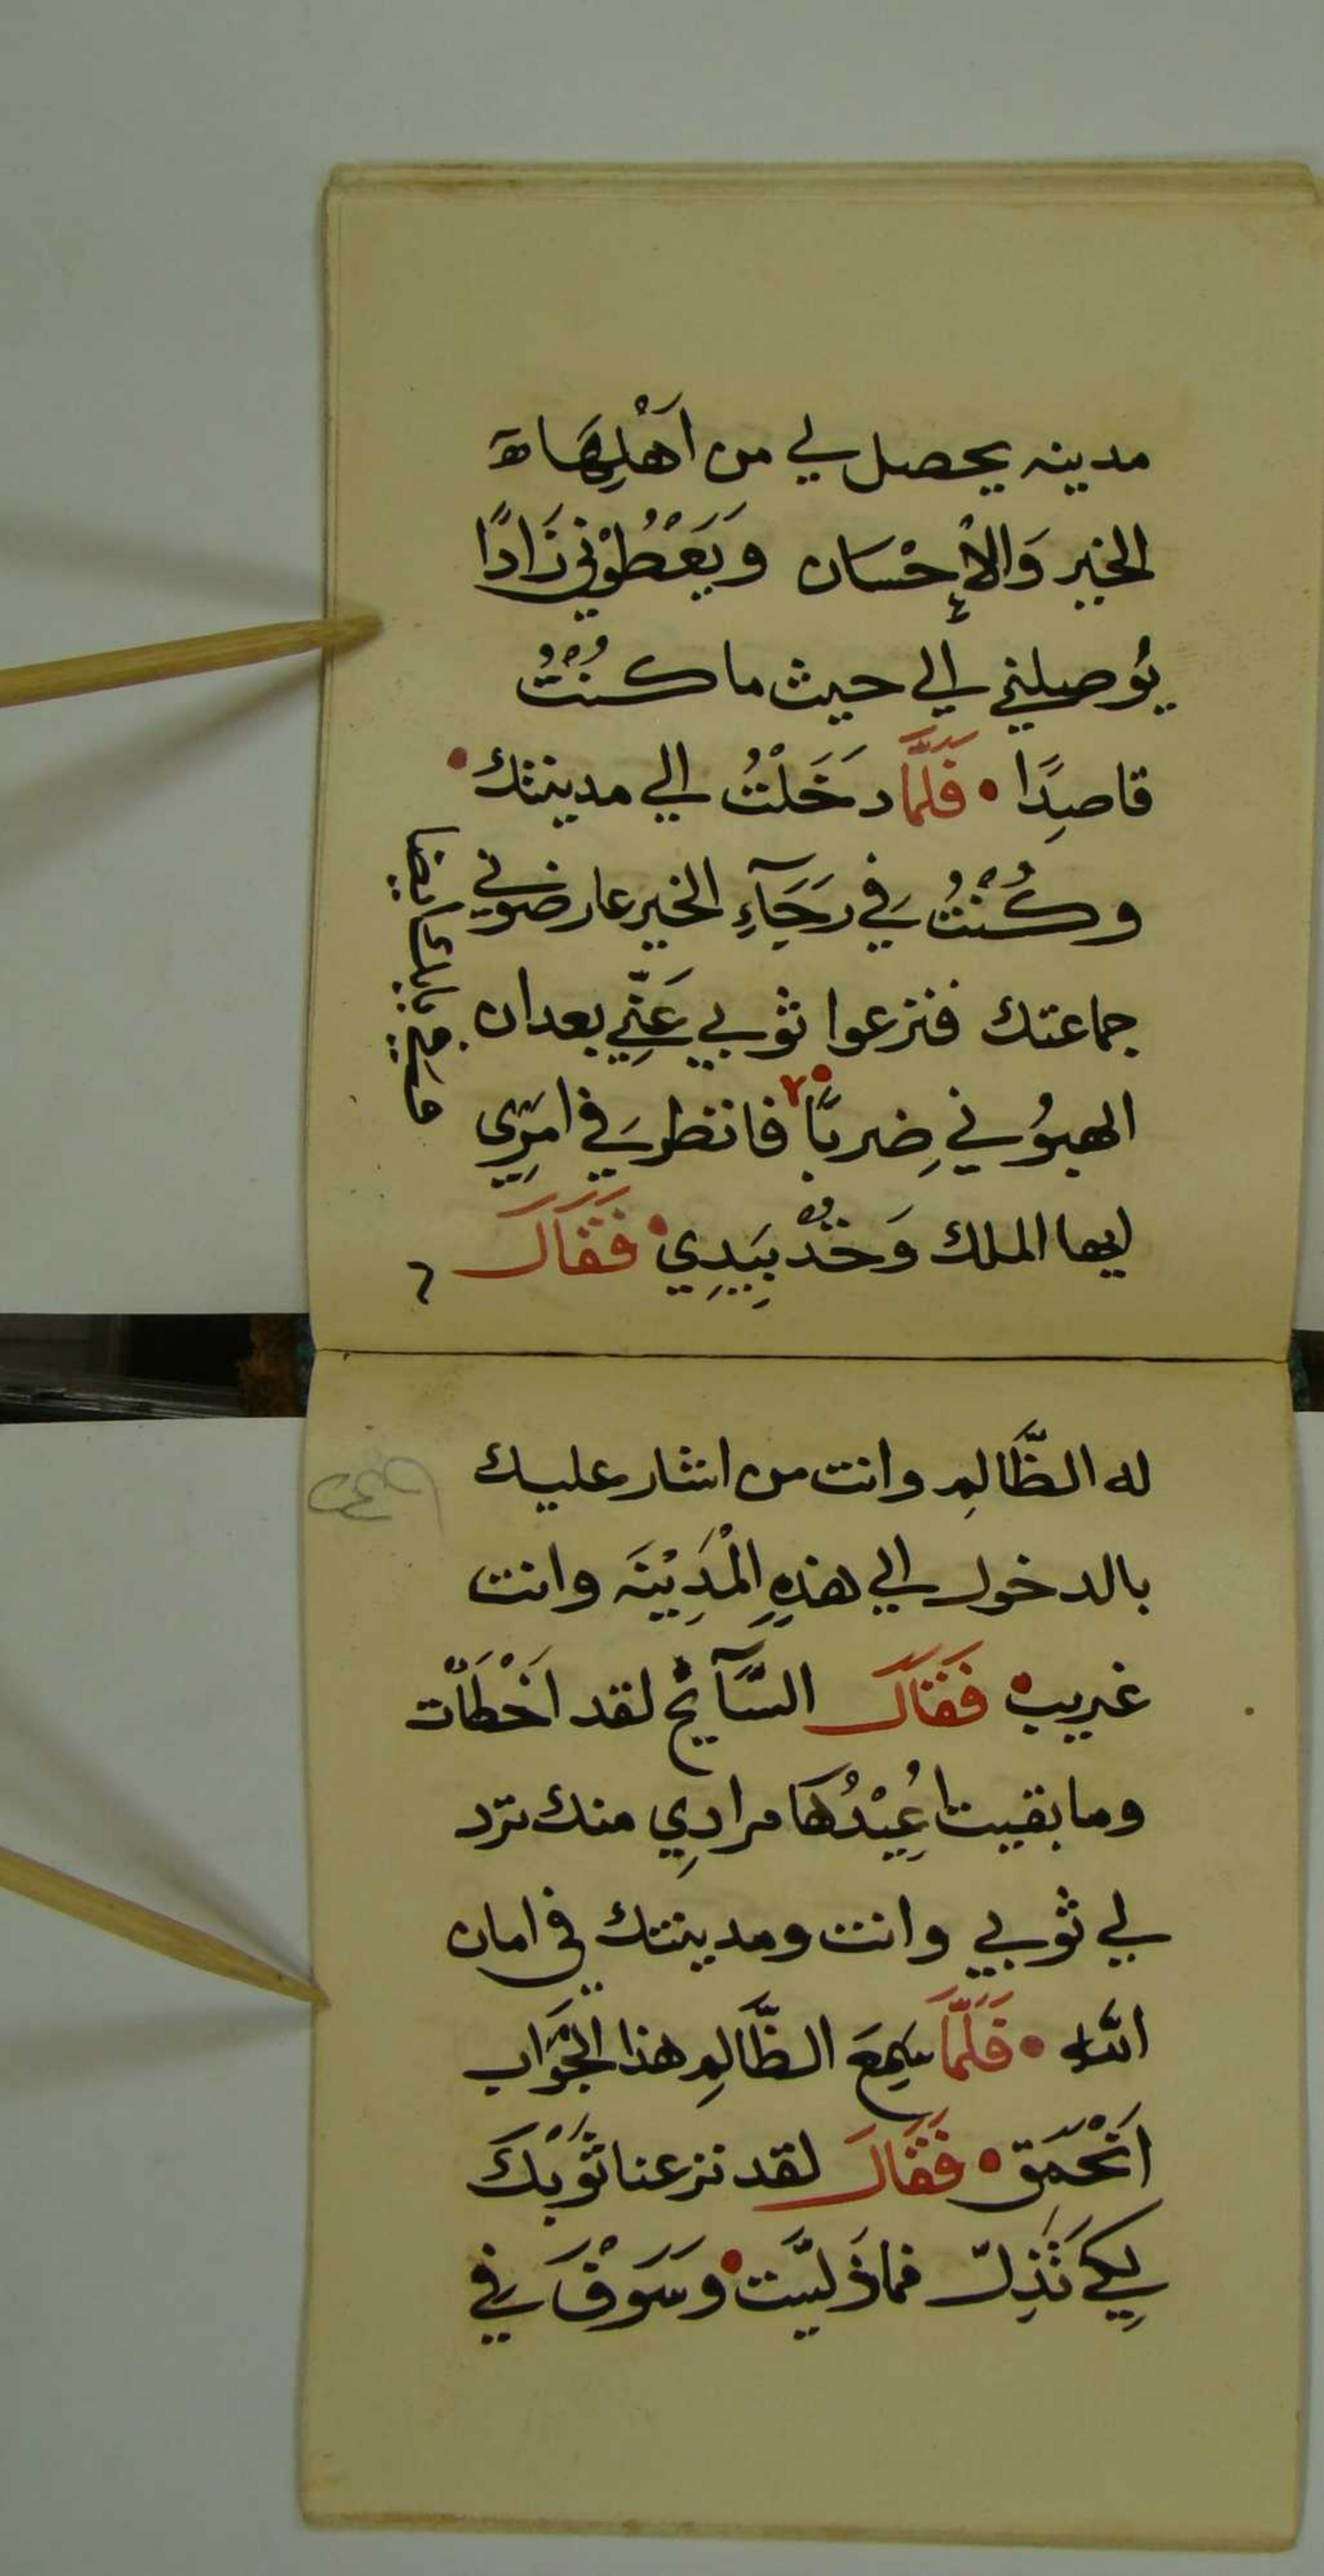 مدينه يحصل لي من اَهْلِهَا
الخير وَالاْإِحْسَان وَيَعْطُوْني زَادًا
يُوصيلني الي حيث ما كُنْتُ
قاصِدًا • فَلَمَّا دَخَلْتُ الي مدينتك •
وكُنْتُ في رَجَآءِ الخير عارضوني
جماعتك فنزعوا ثوبي عَنِّي بعد ان
الهبوُني ضِربًا • فانظر في امرِي
ايها الملك وَخُدْ بِيَدِي • فَقَالَ
له الظَّالِم وانت من اشار عليك
بالدخول الي هذهِ الْمَدِيْنَه وانت
غريب • فَقَالَ السَّآئح لقد اَخْطَأْت
وما بقيت اُعِيْدُهَا مرادِي منك ترد
لي ثوبي وانت ومدينتك في امان
الله • فَلَمَّا سَمِعَ الظَّالِم هذا الْجَوَاب
اَنْحَمَق • فَقَالَ لقد نزعنا ثَوْبَكَ
لِكَي تَذِلّ فما ذَلَّيت • وَسَوْفَ في